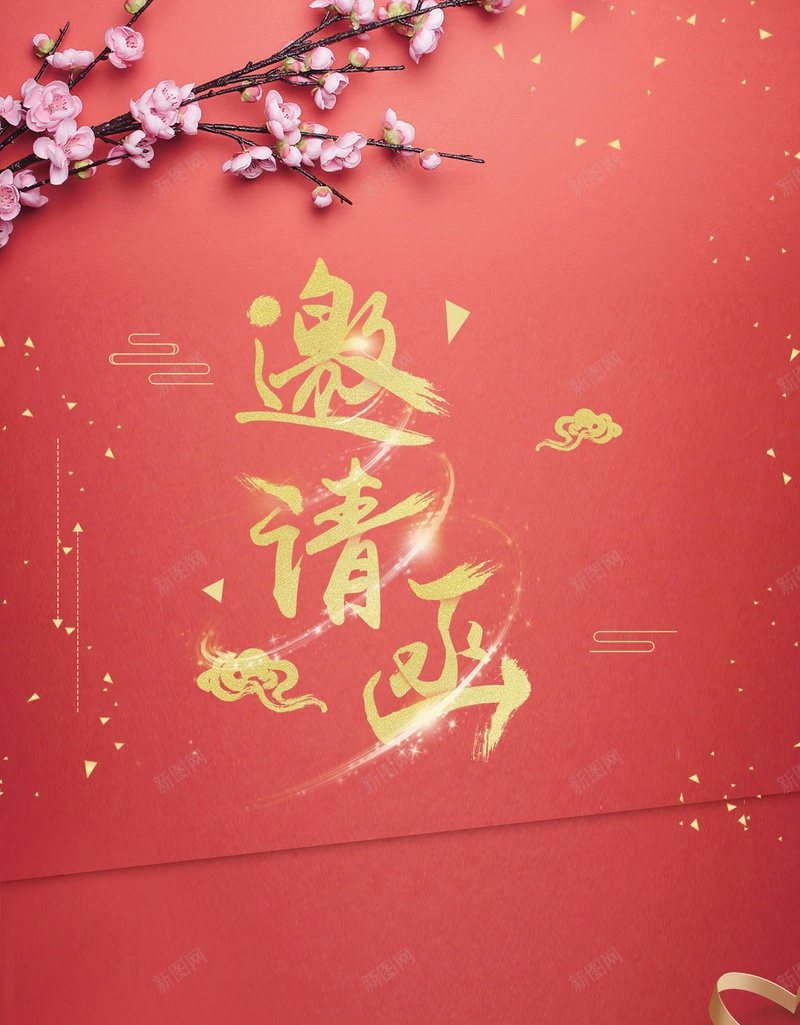 邀
请
函
新图网